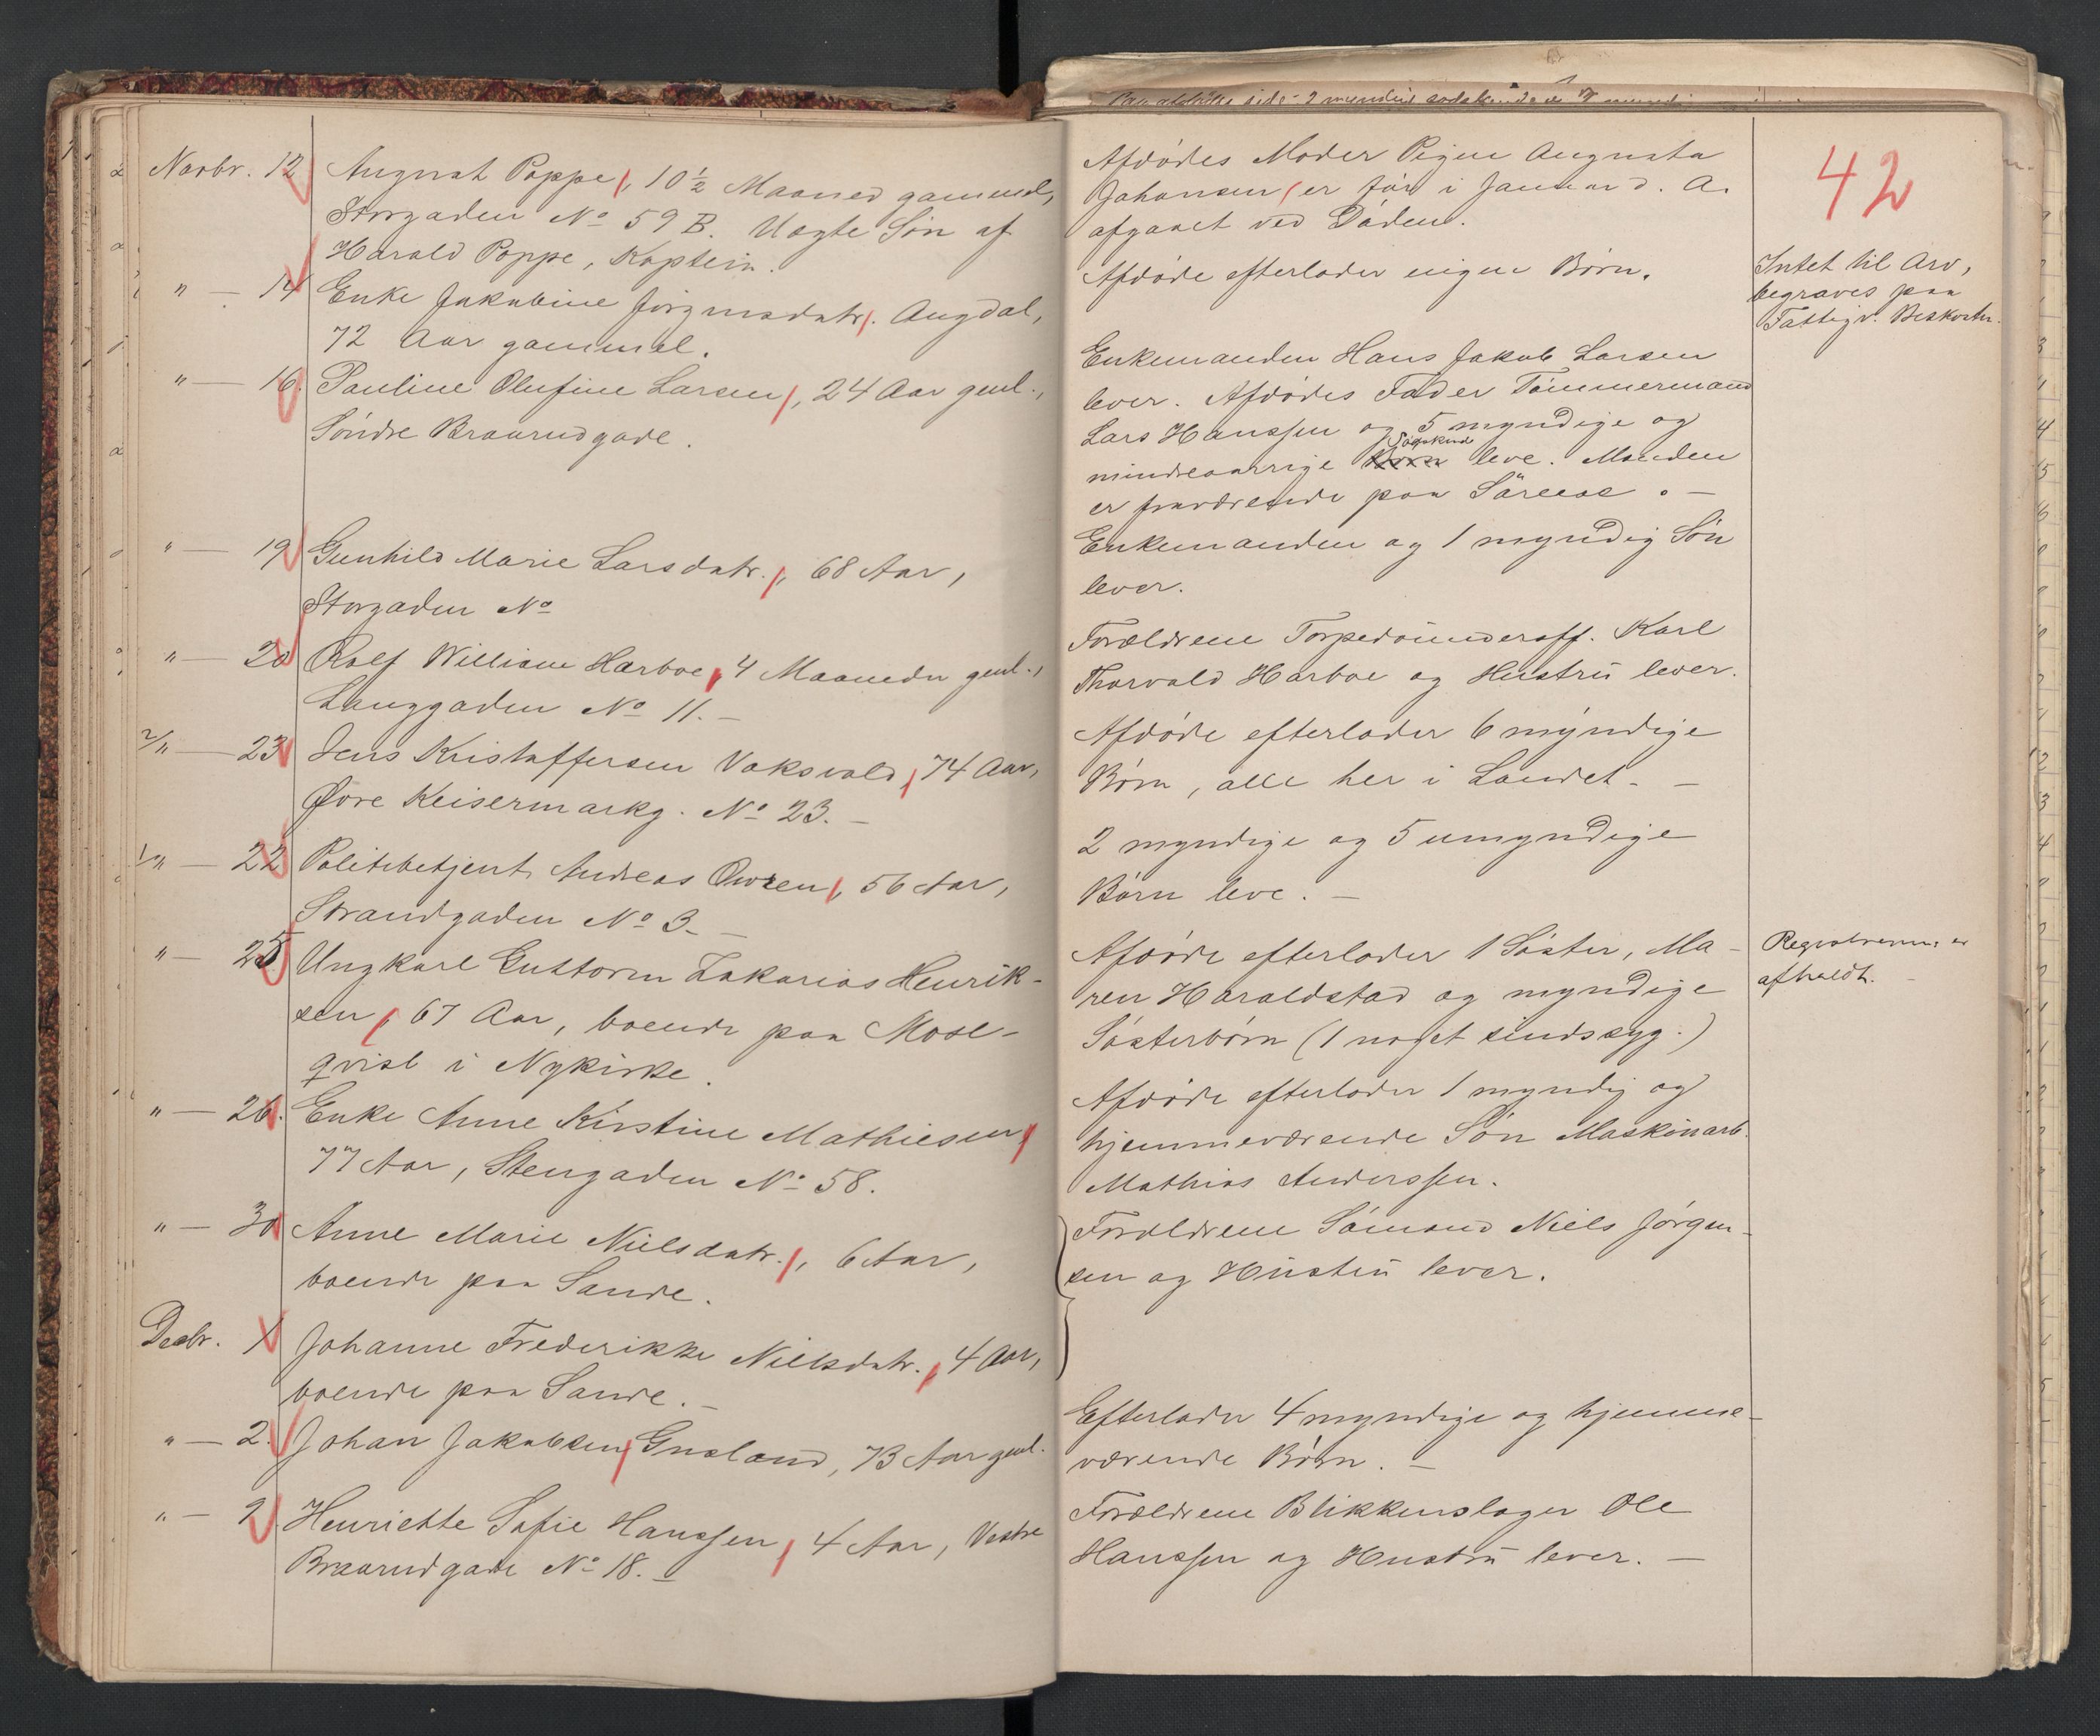 Novbr. 12 August Poppe, 10 ½ Maaned gammel,
Storgaden No 59 B. Uægte Søn af
Harald Poppe, Kaptein.
" — 14 Enke Jakobine Jörgensdatr. Augdal,
72 Aar gammel.
" — 16. Pauline Olufine Larsen, 24 Aar gml.,
Söndre Braarudgade.
" — 19 Gunhild Marie Larsdatr., 68 Aar,
Storgaden No
" — 20 Rolf William Harboe, 4 Maaneder gml.,
Langgaden No 11. —
2/" — 23 Jens Kristoffersen Vaksvold, 74 Aar,
Øvre Keisermarkg. No 23. —
1/" — 22 Politibetjent Andreas Owren, 56 Aar,
Strandgaden No 3. —
" — 25 Ungkarl Guttorm Zakarias Henrik-
sen, 67 Aar, boende paa Mosl-
qvist i Nykirke.
" — 26. Enke Anne Kirstine Mathiesen,
77 Aar, Stengaden No 58.
" — 30 Anne Marie Nielsdatr., 6 Aar,
boende paa Sande.
Decbr. 1 Johanne Frederikke Nielsdatr., 4 Aar,
boende paa Sande. —
" — 2. Johan Jakobsen Gusland, 73 Aar gml.
" — 9. Henriette Sofie Hanssen, 4 Aar, Vestre
Braarudgade No 18. —
Afdödes Moder Pigen Augusta
Johansen er för i Januar d. A.
afgaaet ved Döden.
Afdöde efterlader ingen Börn.
Enkemanden Hans Jakob Larsen
lever. Afdödes Fader Tömmermand
Lars Hanssen og 5 myndige og
mindreaarige Börn Södskende leve. Manden
er fraværende paa Söreise. —
Enkemanden og 1 myndig Sön
lever.
Forældrene Torpedounderoff. Karl
Thorvald Harboe og Hustru lever.
Afdöde efterlader 6 myndige
Börn, alle her i Landet. —
2 myndige og 5 umyndige
Börn leve. —
Afdöde efterlader 1 Söster, Ma-
ren Haraldstad og myndige
Sösterbörn (1 noget sindssyg.)
Afdöde efterlader 1 myndig og
hjemmeværende Sön Maskinarb.
Mathias Anderssen.
Forældrene Sömand Niels Jörgen-
sen og Hustru lever.
Efterlader 4 myndige og hjemme-
værende Börn. —
Forældrene Blikkenslager Ole
Hanssen og Hustru lever. —
42
Intet til Arv,
begraves paa
Fattigv. Bekostn.
Registrering er
afholdt. —